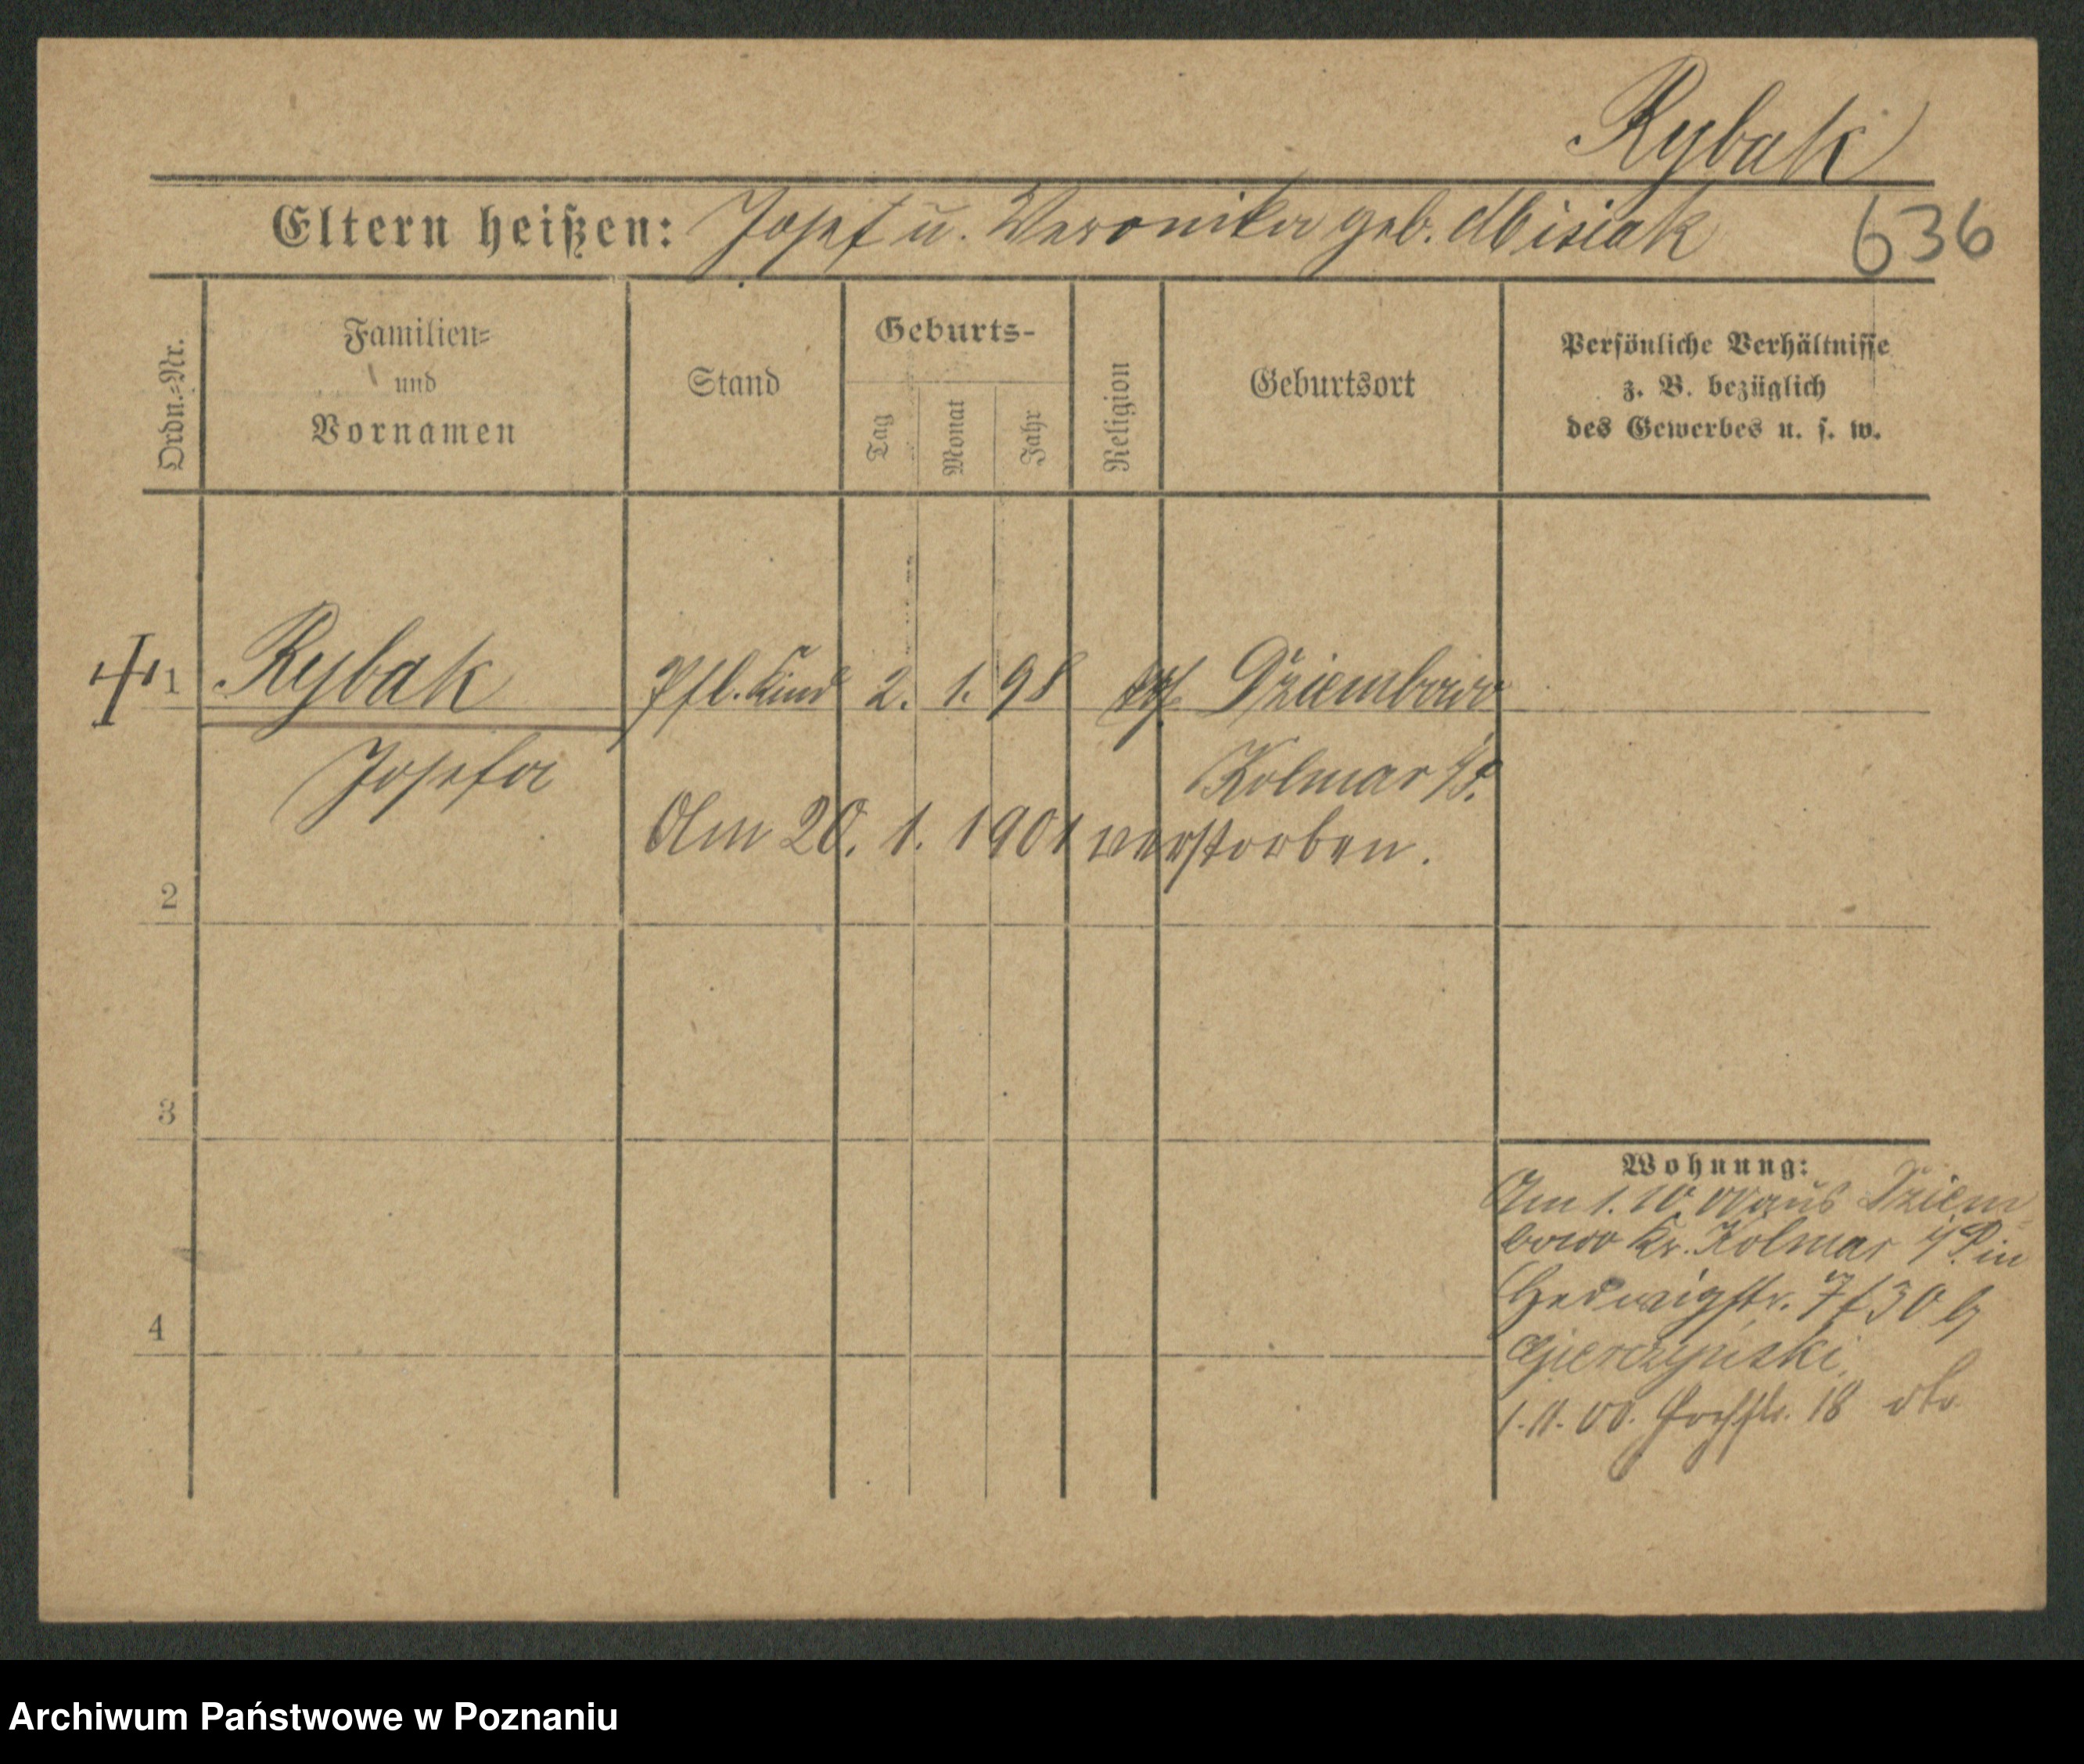 Rybak
Eltern heißen: Josef u. Veronika geb. Misiak 636
Ordn.-Nr.
Familien-
und
Vornamen
Stand
Geburts-
Tag
Monat
Jahr
Religion
Geburtsort
Persönliche Verhältnisse
z. B. bezüglich
des Gewerbes u. s. w.
1 Rybak Pfl. Kind 2. 1. 98 Dziembowo
Josefa Kolmar i/P.
Am 20. 1. 1901 verstorben.
2
3
4
Wohnung:
Am 1. 10. 00 aus Dziem
bowo Kr. Kolmar i/P. in
Hedwigstr. 7 f 30 b/
1. 11. 00. 18
Archiwum Państwowe w Poznaniu